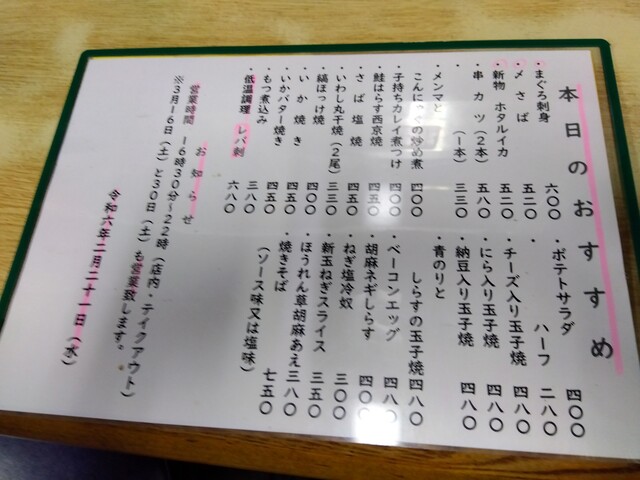 本日のおすすめ
・まぐろ刺身 六〇〇
・〆さば 五二〇
・新物 ホタルイカ 五二〇
・串カツ(2本) 五八〇
・(1本) 三三〇
・メンマと
こんにゃくの炒め煮 四〇〇
・子持ちカレイ煮つけ 四〇〇
・鮭はらす西京焼 四五〇
・さば塩焼 四五〇
・いわし丸干焼(2尾) 三三〇
・縞ほっけ焼 四〇〇
・いか焼き 四五〇
・いかバター焼き 四五〇
・もつ煮込み 三八〇
・低温調理 レバ刺 六八〇
・ポテトサラダ 四〇〇
・ハーフ 二八〇
・チーズ入り玉子焼 四八〇
・にら入り玉子焼 四八〇
・納豆入り玉子焼 四八〇
・青のりと
しらすの玉子焼 四八〇
・ベーコンエッグ 四八〇
・胡麻ネギしらす 四〇〇
・ねぎ塩冷奴 三〇〇
・新玉ねぎスライス 三五〇
・ほうれん草胡麻あえ 三八〇
・焼きそば 七五〇
(ソース味又は塩味)
お知らせ
営業時間 16時30分~22時(店内・テイクアウト)
※3月16日(土)と30日(土)も営業致します。
令和六年二月二十一日(水)